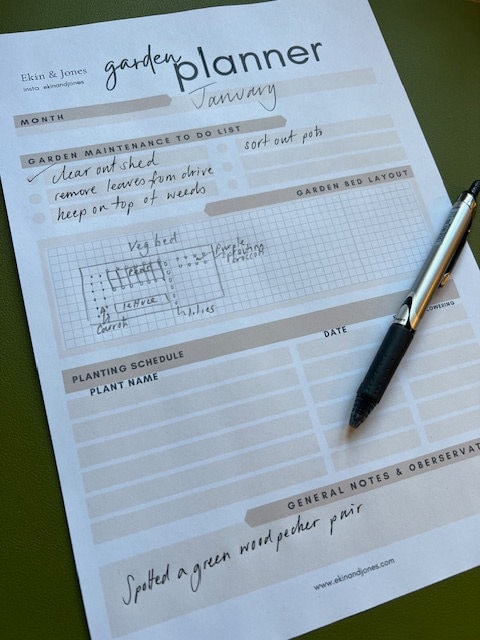 Ekin & Jones
insta ekinandjones
garden planner
MONTH
January
GARDEN MAINTENANCE TO DO LIST
clear out shed
remove leaves from drive
keep on top of weeds
sort out pots
GARDEN BED LAYOUT
Veg bed
Purple
sprouting
broccoli
lettuce
carrot
PLANTING SCHEDULE
PLANT NAME
DATE
GENERAL NOTES & OBERSERVAT
Spotted a green woodpecker pair
www.ekinandjones.com